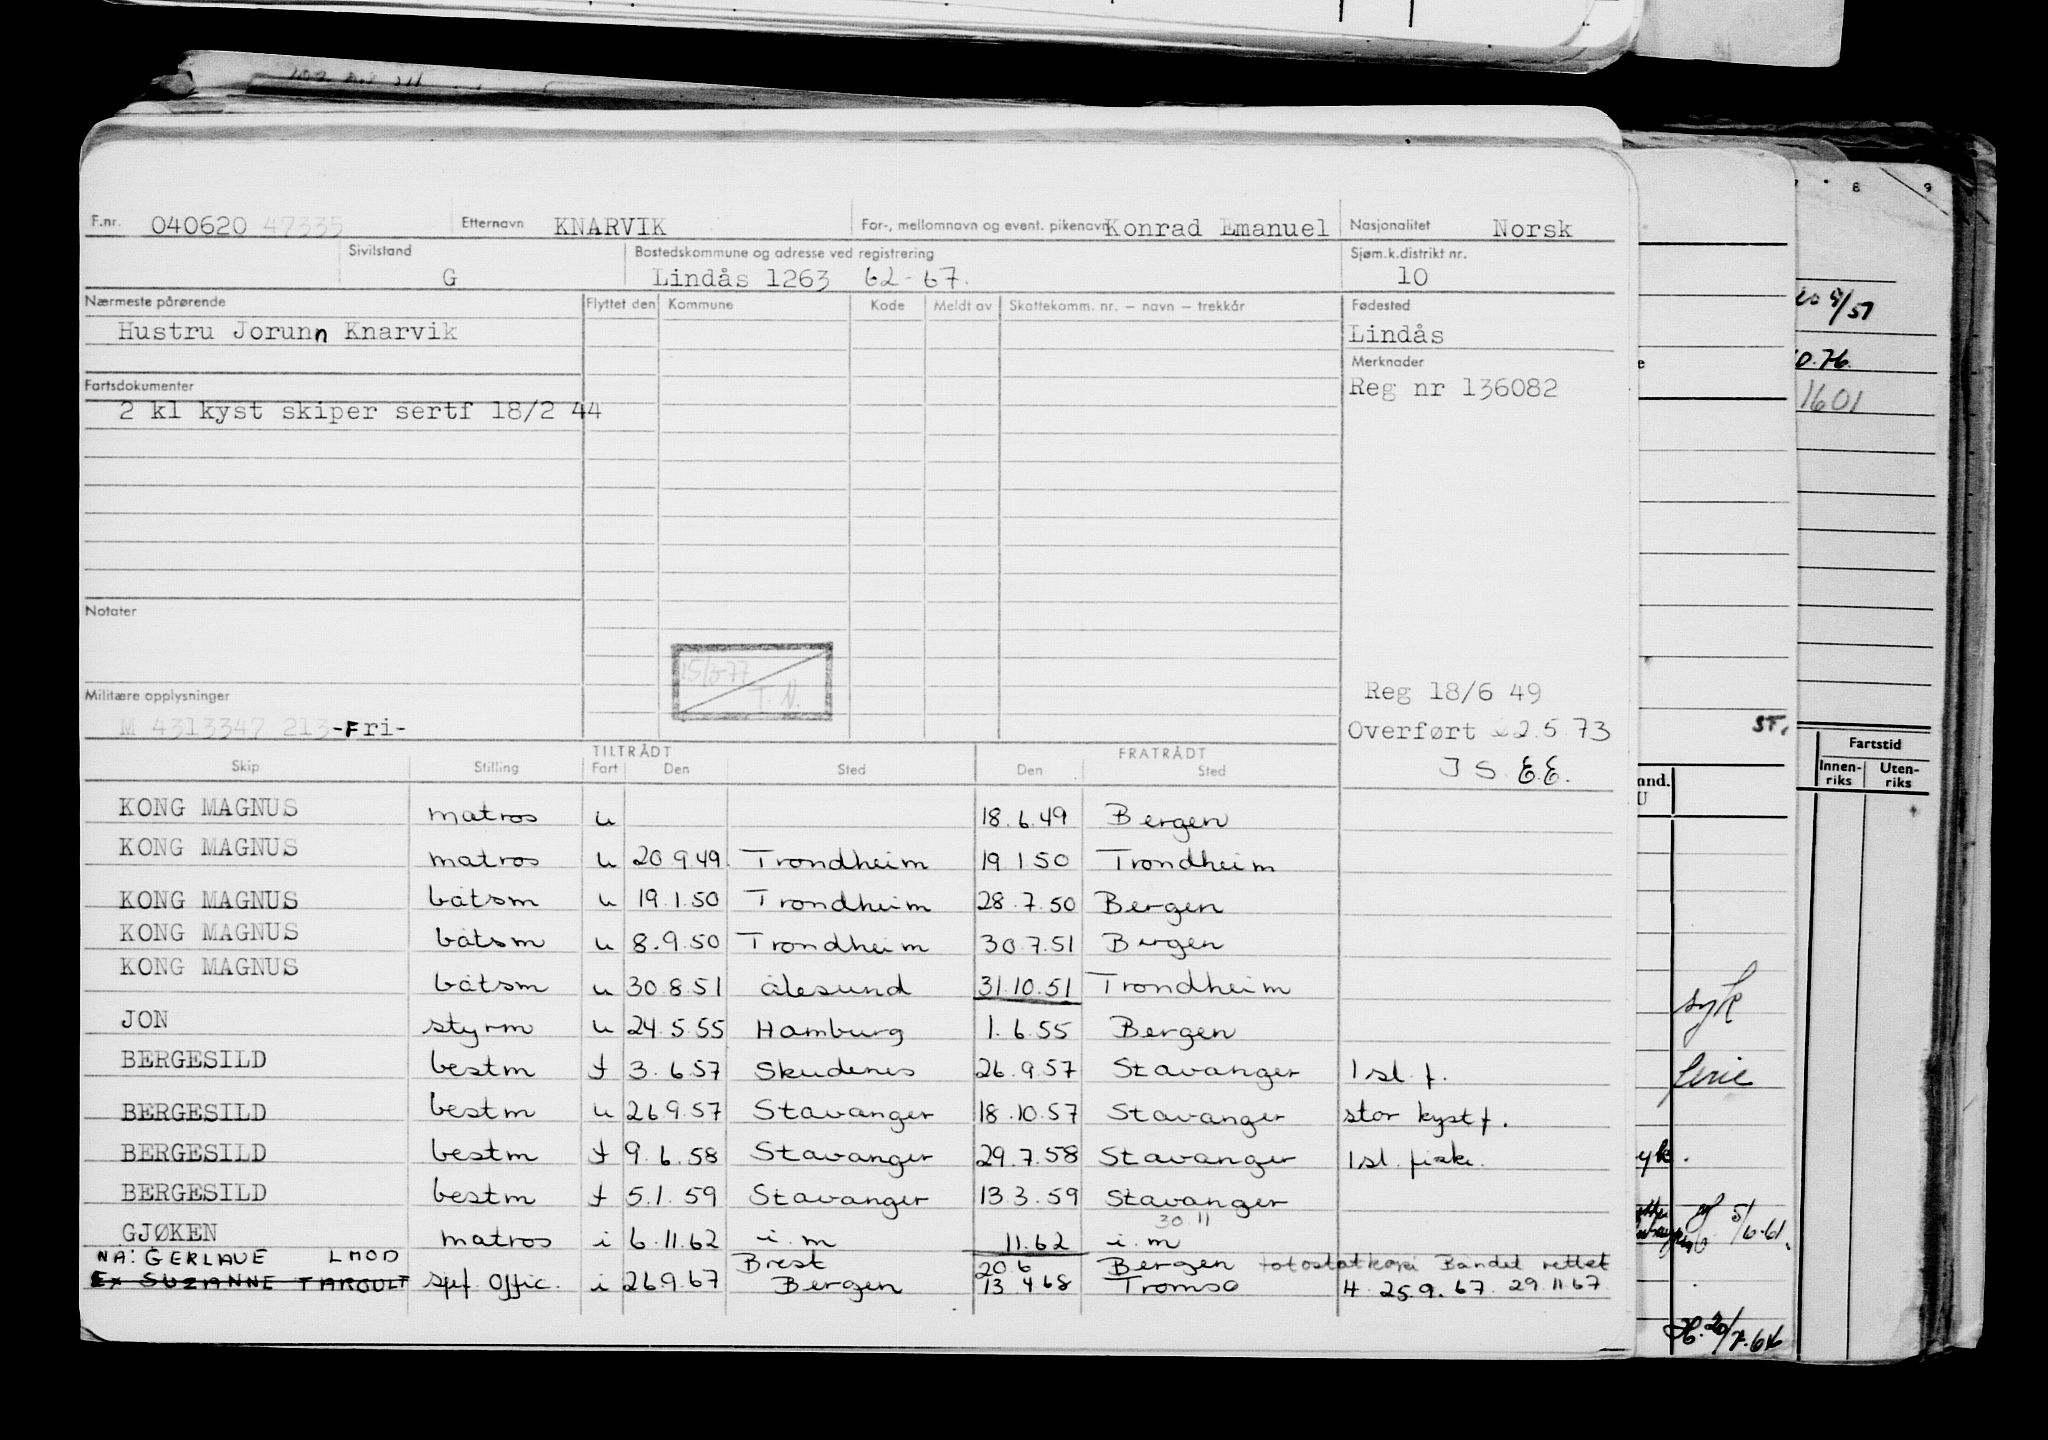 F.nr. 040620 47335 Etternavn KNARVIK For-, mellomnavn og event. pikenavn Konrad Emanuel Nasjonalitet Norsk
Sivilstand G Bostedskommune og adresse ved registrering Lindås 1263 62-67. Sjøm.k.distrikt nr. 10
Nærmeste pårørende Flyttet den Kommune Kode Meldt av Skattekomm. nr. — navn — trekkår Fødested
Hustru Jorunn Knarvik Lindås
Merknader
Fartsdokumenter Reg nr 136082
2 kl kyst skiper sertf 18/2 44
Notater
15/3-77
T. N.
Militære opplysninger Reg 18/6 49
M 4313347 213-Fri- Overført 22.5.73
TILTRÅDT FRATRÅDT
Skip Stilling Fart Den Sted Den Sted J S. E.E.
KONG MAGNUS matros u 18.6.49 Bergen
KONG MAGNUS matros u 20.9.49. Trondheim 19.1.50 Trondheim
KONG MAGNUS båtsm u 19.1.50 Trondheim 28.7.50 Bergen
KONG MAGNUS båtsm u 8.9.50 Trondheim 30.7.51 Bergen
KONG MAGNUS båtsm u 30.8.51 Ålesund 31.10.51 Trondheim
JON styrm u 24.5.55 Hamburg 1.6.55 Bergen
BERGESILD bestm f 3.6.57 Skudenes 26.9.57 Stavanger Isl. f.
BERGESILD bestm u 26.9.57 Stavanger 18.10.57 Stavanger stor kyst f.
BERGESILD bestm f 9.6.58 Stavanger 29.7.58 Stavanger Isl. fiske.
BERGESILD bestm f 5.1.59 Stavanger 13.3.59 Stavanger
30.11
GJØKEN matros i 6.11.62 i.m 11.62 i.m
NA: GERLAUE LMOD Brest 20 6 Bergen fotostatkopi Bandet rettet
Ex SUZANNE TARGULT spf. Offic. i 26.9.67 Bergen 13.4.68 Tromsø 4. 25.9.67. 29.11.67
8 9
5/51
0.76.
1601
ST.
Fartstid
Innen-
riks
Uten-
riks
and.
U
syk
ferie
yk.
5/6-61.
H. 20/7.66